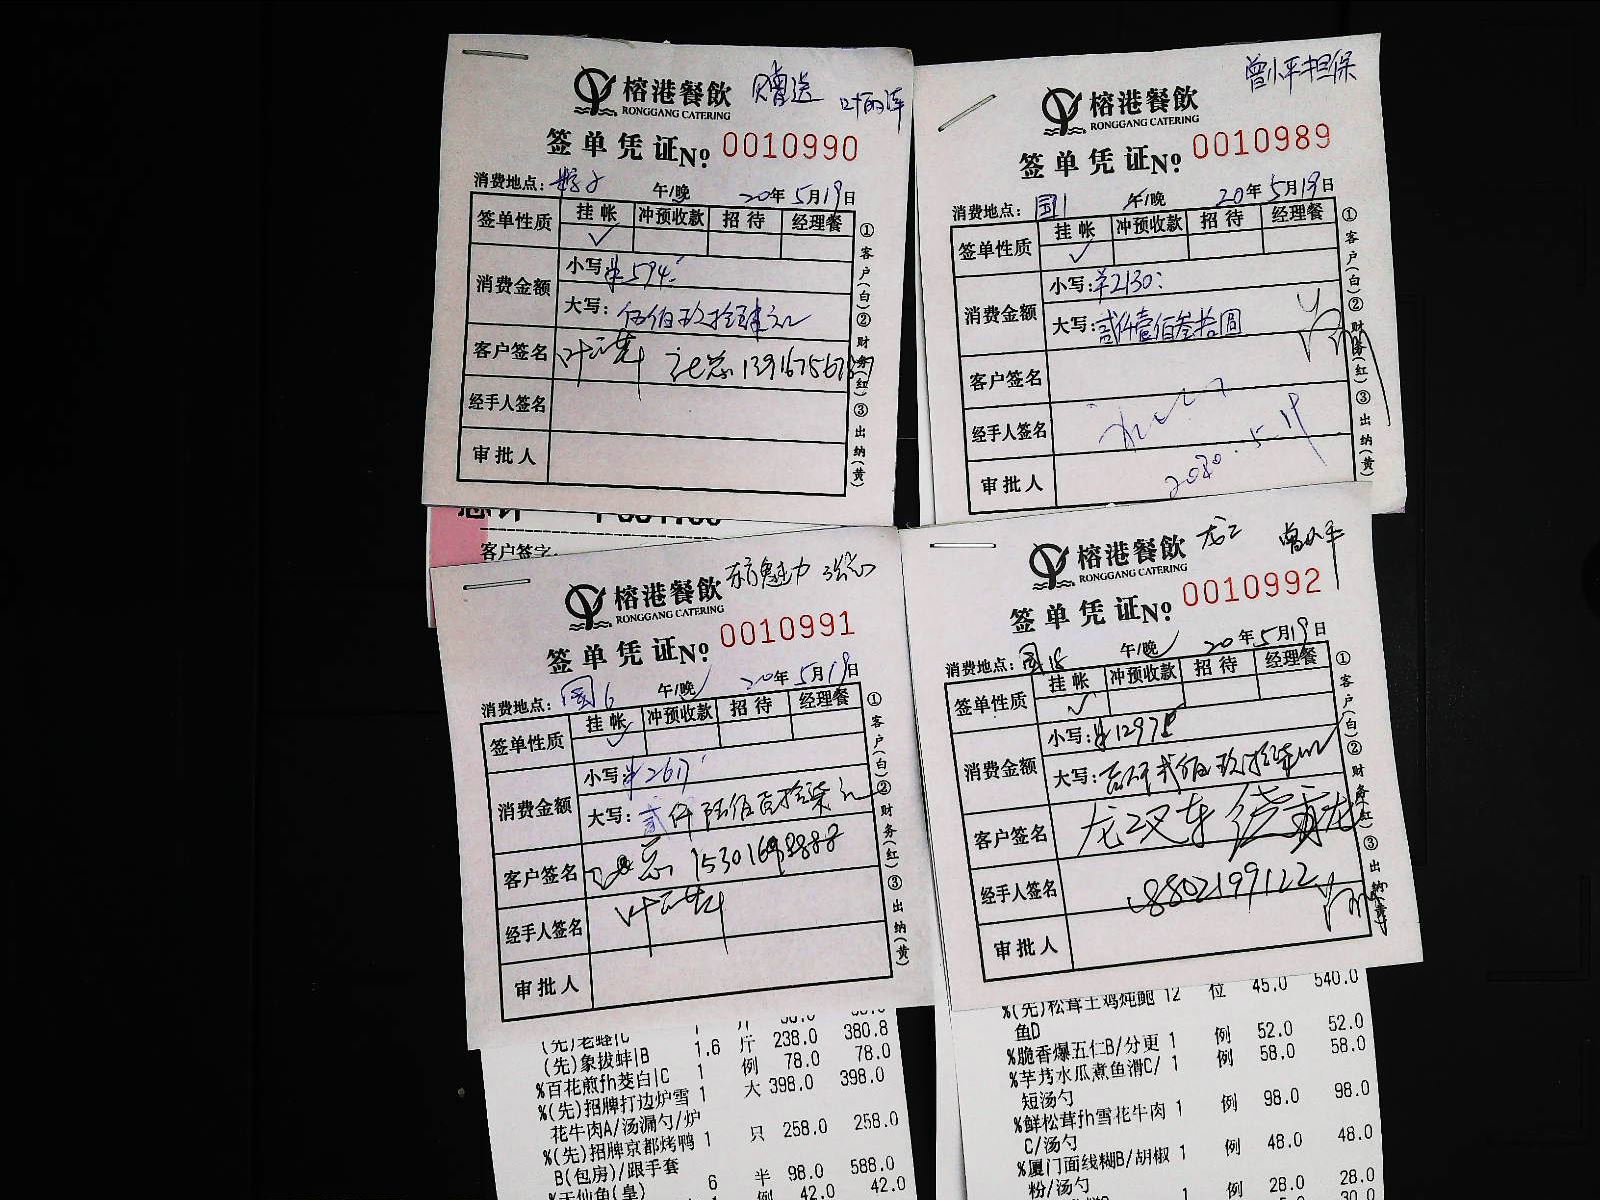 榕港餐飲 赠送
RONGGANG CATERING
签单凭证№ 0010990
消费地点: 午/晚 20年5月19日
签单性质 挂帐 冲预收款 招待 经理餐
✓
消费金额 小写:¥594
大写:伍佰玖拾肆元
客户签名
经手人签名
审批人
①客户(白)②财务(红)③出纳(黄)
曾小平担保
榕港餐飲
RONGGANG CATERING
签单凭证№ 0010989
消费地点:国1 午/晚 20年5月19日
签单性质 挂帐 冲预收款 招待 经理餐
✓
消费金额 小写:¥2130
大写:贰仟壹佰叁拾圆
客户签名
经手人签名
审批人 2020.5.19
①客户(白)②财务(红)③出纳(黄)
客户签字:
榕港餐飲 东方魅力 张总
RONGGANG CATERING
签单凭证№ 0010991
消费地点:国6 午/晚 20年5月19日
签单性质 挂帐 冲预收款 招待 经理餐
✓
消费金额 小写:¥2617
大写:贰仟陆佰壹拾柒元
客户签名
经手人签名
审批人
①客户(白)②财务(红)③出纳(黄)
榕港餐飲 龙工 曾小平
RONGGANG CATERING
签单凭证№ 0010992
消费地点:国18 午/晚 20年5月19日
签单性质 挂帐 冲预收款 招待 经理餐
✓
消费金额 小写:¥1297
大写:壹仟贰佰玖拾柒元
客户签名 龙工叉车
经手人签名 18802199122
审批人
①客户(白)②财务(红)③出纳(黄)
(先)象拔蚌|B 1.6 斤 238.0 380.8
%百花煎fh茭白|C 1 例 78.0 78.0
%(先)招牌打边炉雪 1 大 398.0 398.0
花牛肉A/汤漏勺/炉
%(先)招牌京都烤鸭 1 只 258.0 258.0
B(包房)/跟手套
%天仙鱼(皇) 6 半 98.0 588.0
例 42.0 42.0
%(先)松茸土鸡炖鲍 12 位 45.0 540.0
鱼D
%脆香爆五仁B/分更 1 例 52.0 52.0
%芋艿水瓜煮鱼滑C/ 1 例 58.0 58.0
短汤勺
%鲜松茸fh雪花牛肉 1 例 98.0 98.0
C/汤勺
%厦门面线糊B/胡椒 1 例 48.0 48.0
粉/汤勺
例 28.0 28.0